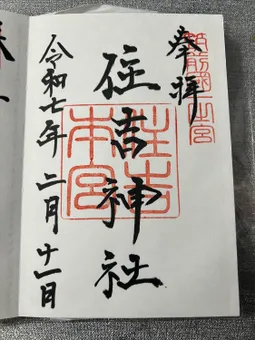 奉拝
筑前國一之宮
住吉神社
住吉本宮
令和七年二月十一日